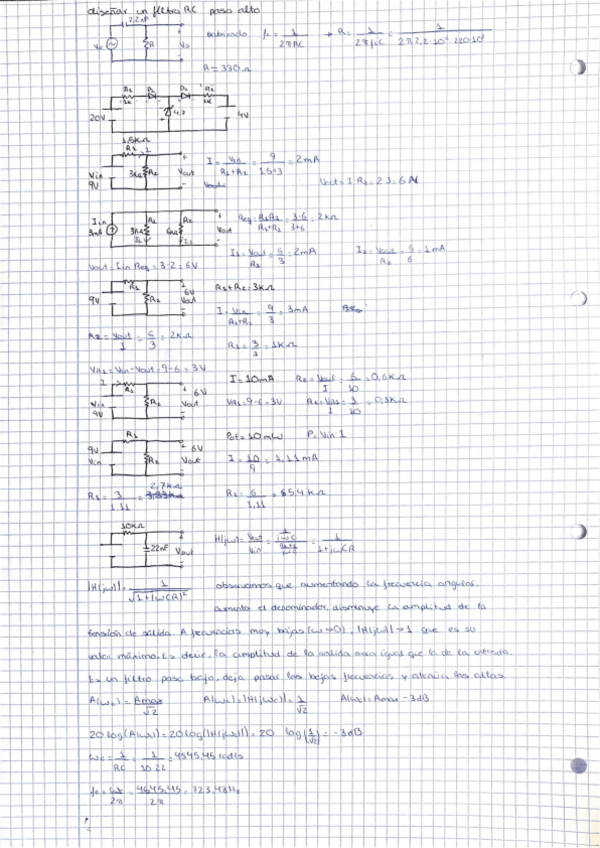 diseñar un filtro RC paso alto
2,2nF
R
fc = 1/2πRC → R = 1/2πfC
R = 330Ω
R1 D1 D2 R2
1K 1K
20V 4,7 4V
1,5kΩ
R1 I
Vin 9V 3kΩ R2 Vout
I = Vin/R1+R2 = 9/1.5+3 = 2mA
Iin 3mA R1 3kΩ R2 6kΩ Vout
Req = R1R2/R1+R2 = 3·6/3+6 = 2kΩ
I1 = Vout/R1 = 6/3 = 2mA I2 = Vout/R2 = 6/6 = 1mA
Vout = Iin Req = 3·2 = 6V
9V R1 R2 6V Vout
R1+R2 = 3kΩ
I = Vin/R1+R2 = 9/3 = 3mA
R2 = Vout/I = 6/3 = 2kΩ
R1 = 3/3 = 1kΩ
VR1 = Vin - Vout = 9-6 = 3V
I R1 6V
Vin 9V R2 Vout
I = 10mA R2 = Vout/I = 6/10 = 0,6kΩ
VR1 = 9-6 = 3V R1 = VR1/I = 3/10 = 0,3kΩ
R1
9V Vin R2 6V Vout
Pot = 10mW P = Vin I
I = 10/9 = 1,11mA
R1 = 3/1,11 = 2,7kΩ
R2 = 6/1,11 = 5,4kΩ
10kΩ
22nF Vout
|H(jω)| = 1/√1+(ωCR)² observamos que aumentando la frecuencia angular,
aumenta el denominador, disminuye la amplitud de la
tensión de salida. A frecuencias muy bajas (ω→0), |H(jω)|→1 que es su
valor máximo, es decir, la amplitud de la salida sera igual que la de la entrada.
Es un filtro paso bajo, deja pasar las bajas frecuencias y atenúa las altas.
A(ωc) = Amax/√2 A(ωc) = |H(jωc)| = 1/√2 A(ωc) = Amax - 3dB
20 log(A(ωc)) = 20 log(|H(jωc)|) = 20 log(1/√2) = -3dB
ωc = 1/RC = 1/10·22 = 4545,45 rad/s
fc = ωc/2π = 4545,45/2π = 723,43Hz